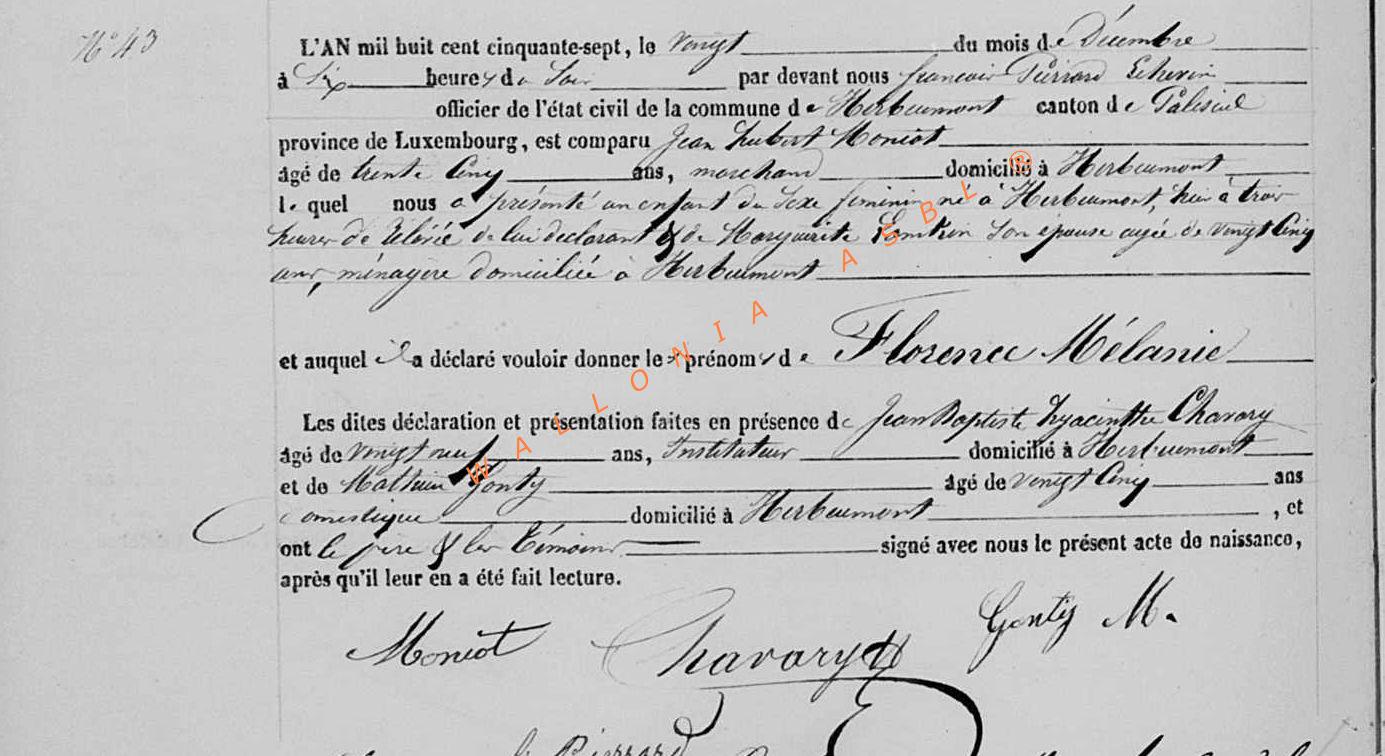 N° 43
L'AN mil huit cent cinquante-sept, le vingt du mois de Décembre
à Six heures du Soir par devant nous françois Pierrard Echevin
officier de l'état civil de la commune de Herbeumont canton de Paliseul
province de Luxembourg, est comparu Jean hubert Moniot
âgé de trente Cinq ans, marchand domicilié à Herbeumont
le quel nous a présenté un enfant du Sexe féminin né à Herbeumont, hier à trois
heures de de lui déclarant & de Marguerite Son épouse agée de vingt Cinq
ans, ménagère domiciliée à Herbeumont
et auquel il a déclaré vouloir donner les prénoms de Florence Mélanie
Les dites déclaration et présentation faites en présence de Jean Baptiste hyacinthe Chavary
âgé de vingt neuf ans, Instituteur domicilié à Herbeumont
et de Gonty âgé de vingt Cinq ans
domestique domicilié à Herbeumont , et
ont le père & les témoins signé avec nous le présent acte de naissance,
après qu'il leur en a été fait lecture.
Moniot Chavary Gonty M.
Pierrard
WALLONIA ASBL ®